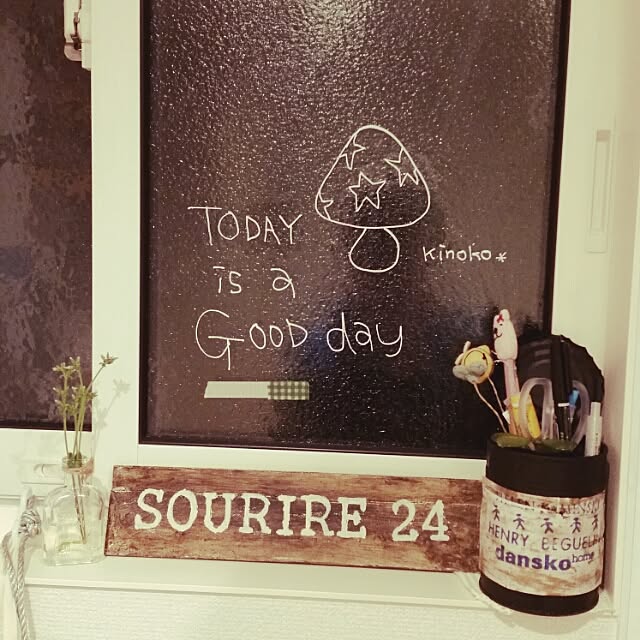 TODAY
is a
GOOD day
kinoko*
SOURIRE 24
HENRY BEGUELIN
dansko home